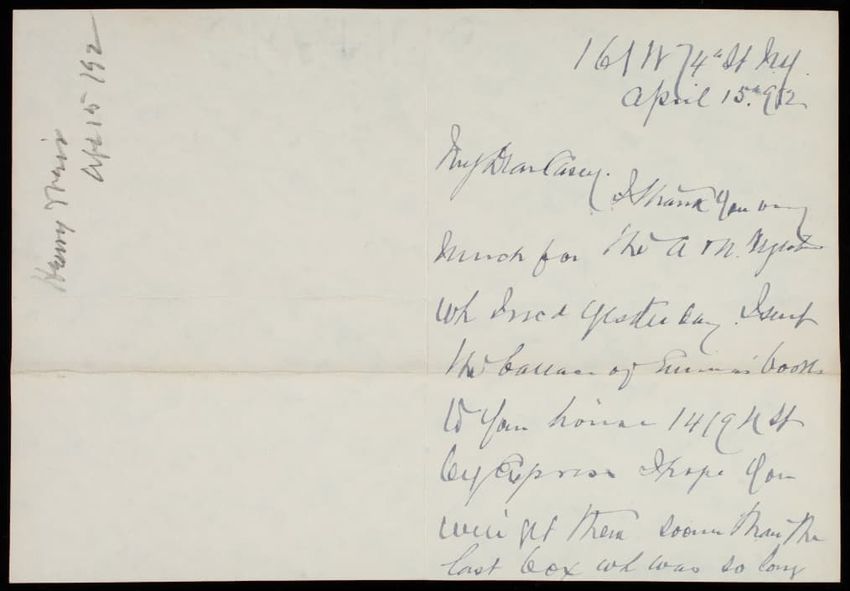 Henry
Apl 15 192
161 W 74th St NY.
April 15th 92
My Dear Casey.
I thank you very
much for the A & N. Register
wh I recd yesterday. I sent
the ballance of Emma's books
to your house 1419 K St
by Express I hope you
will get them sooner than the
last box wh was so long